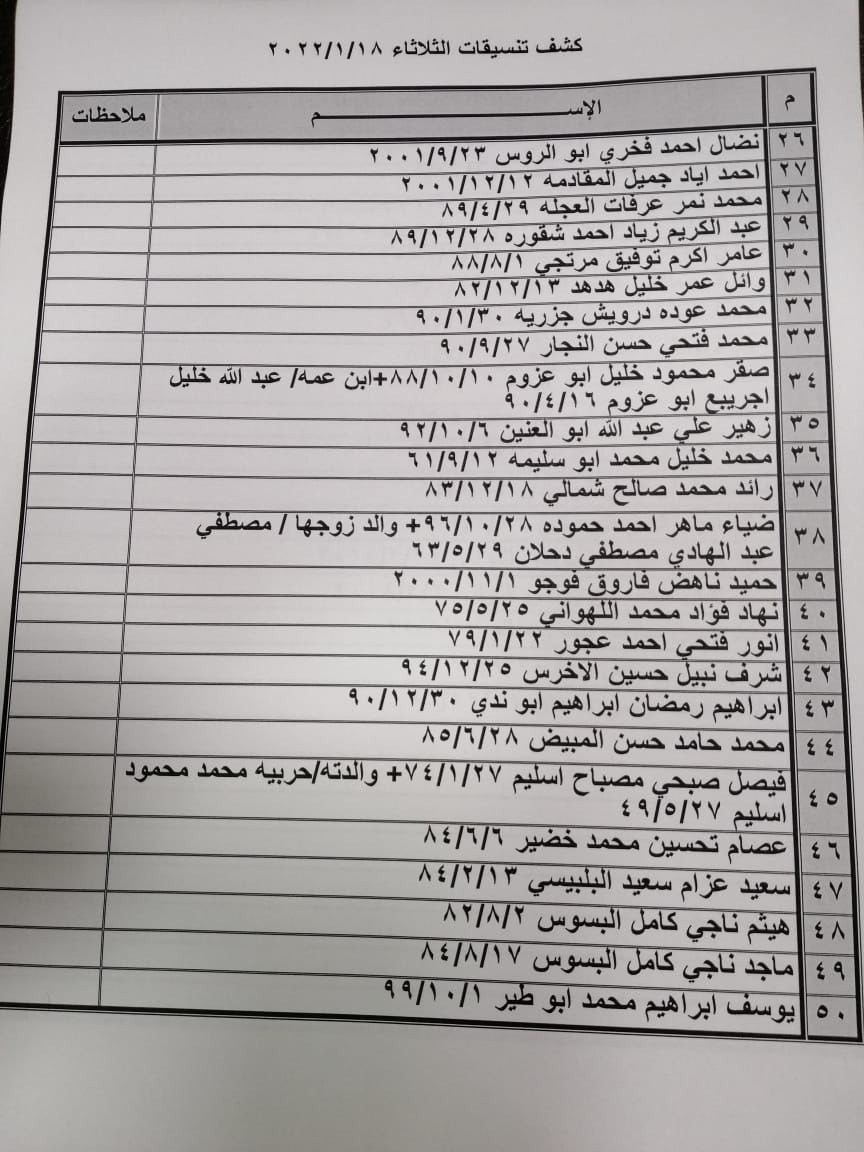 كشف تنسيقات الثلاثاء ٢٠٢٢/١/١٨
م الإســـــــــــــــــــــم ملاحظات
٢٦ نضال احمد فخري ابو الروس ٢٠٠١/٩/٢٣
٢٧ احمد اياد جميل المقادمه ٢٠٠١/١٢/١٢
٢٨ محمد نمر عرفات العجله ٨٩/٤/٢٩
٢٩ عبد الكريم زياد احمد شقوره ٨٩/١٢/٢٨
٣٠ عامر اكرم توفيق مرتجي ٨٨/٨/١
٣١ وائل عمر خليل هدهد ٨٢/١٢/١٣
٣٢ محمد عوده درويش جزريه ٩٠/١/٣٠
٣٣ محمد فتحي حسن النجار ٩٠/٩/٢٧
٣٤ صقر محمود خليل ابو عزوم ٨٨/١٠/١٠+ابن عمه/ عبد الله خليل
اجريبع ابو عزوم ٩٠/٤/١٦
٣٥ زهير علي عبد الله ابو العنين ٩٢/١٠/٦
٣٦ محمد خليل محمد ابو سليمه ٦١/٩/١٢
٣٧ رائد محمد صالح شمالي ٨٣/١٢/١٨
٣٨ ضياء ماهر احمد حموده ٩٦/١٠/٢٨+ والد زوجها / مصطفي
عبد الهادي مصطفي دحلان ٦٣/٥/٢٩
٣٩ حميد ناهض فاروق فوجو ٢٠٠٠/١١/١
٤٠ نهاد فؤاد محمد اللهواني ٧٥/٥/٢٥
٤١ انور فتحي احمد عجور ٧٩/١/٢٢
٤٢ شرف نبيل حسين الاخرس ٩٤/١٢/٢٥
٤٣ ابراهيم رمضان ابراهيم ابو ندي ٩٠/١٢/٣٠
٤٤ محمد حامد حسن المبيض ٨٥/٦/٢٨
٤٥ فيصل صبحي مصباح اسليم ٧٤/١/٢٧+ والدته/حربيه محمد محمود
اسليم ٤٩/٥/٢٧
٤٦ عصام تحسين محمد خضير ٨٤/٦/٦
٤٧ سعيد عزام سعيد البلبيسي ٨٤/٢/١٣
٤٨ هيثم ناجي كامل البسوس ٨٢/٨/٢
٤٩ ماجد ناجي كامل البسوس ٨٤/٨/١٧
٥٠ يوسف ابراهيم محمد ابو طير ٩٩/١٠/١